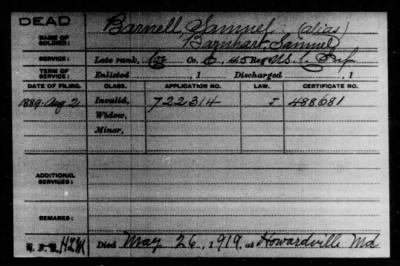 DEAD
NAME OF SOLDIER: Barnell, Samuel (alias)
Barnhart, Samuel
SERVICE: Late rank, Co. 45 Reg't U.S.C. Inf
TERM OF SERVICE: Enlisted , 1 Discharged , 1
DATE OF FILING. CLASS. APPLICATION NO. LAW. CERTIFICATE NO.
1889-Aug 2 Invalid, 722314 J 488681
Widow,
Minor,
ADDITIONAL SERVICES:
REMARKS:
Died May 26, 1919, at Howardville Md